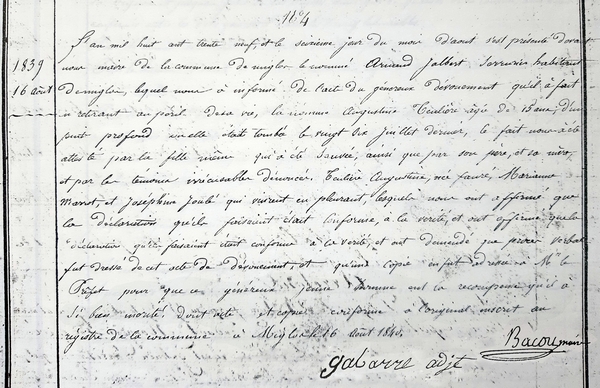 1839
16 août
L'an mil huit cent trente neuf, et le seizième jour du mois d'août s'est présenté devant
nous maire de la commune de miglos le nommé Arnaud Jalbert Serrurier habitant
de miglos, lequel nous a informé de l'acte du généreux dévouement qu'il a fait
en retirant au péril de sa vie, la nommée Augustine Teulière âgée de 15 ans, d'un
puit profond où elle était tombé le vingt six juillet dernier, le fait nous a été
attesté par la fille même qui a été sauvée, ainsi que par son père, et sa mère,
et par les témoins irrécusables dénoncer. Teulière Augustine, née faure, Marianne
et Joséphine Joulé qui vinrent en pleurant, lesquels nous ont affirmé que
la déclaration qu'ils faisaient était Conforme, à la vérité, et ont affirmé que la
déclaration qu'ils faisaient était conforme à la vérité, et ont demandé que procès verbal
fut dressé de cet acte de dévouement, et qu'une copie en fut adressée à Mr le
Préfet pour que ce généreux jeune homme eut la recompense qu'il a
si bien mérité dont acte et copié conforme à l'original inscrit au
régistre de la commune à Miglos le 16 Août 1840.
Bacou maire
galarre adjt